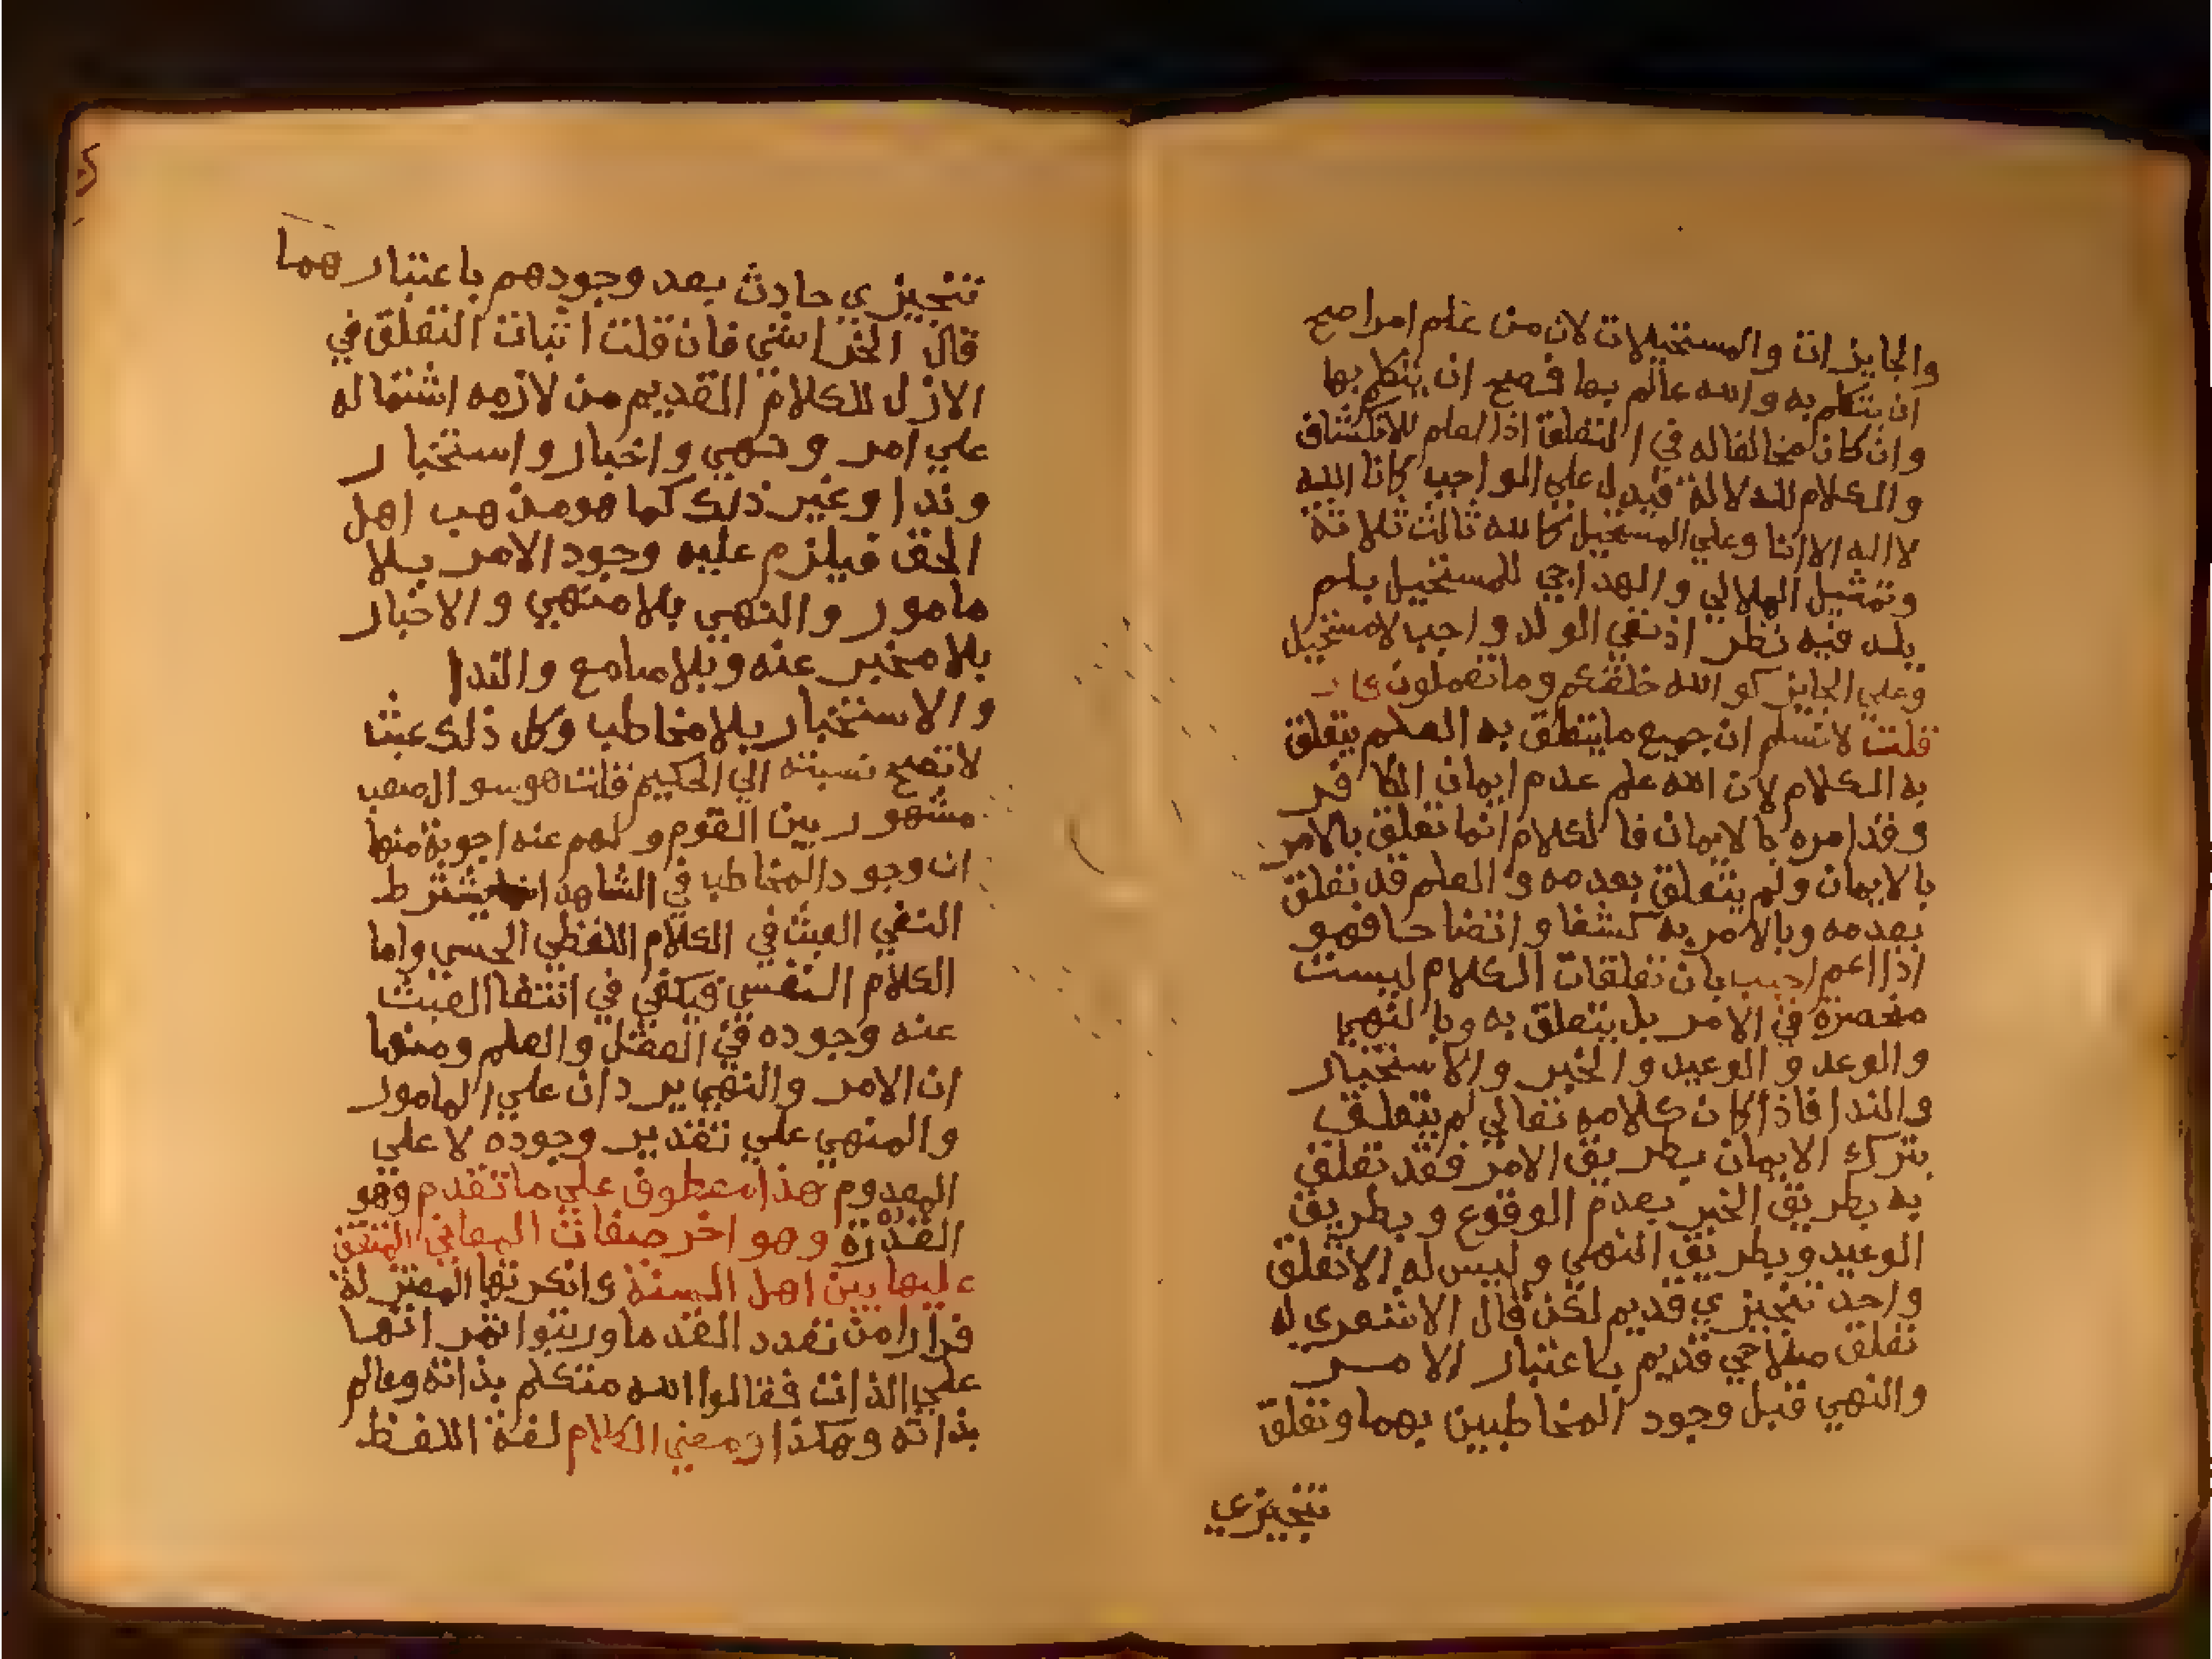 والجايزات والمستحيلات لان من علم امرا صح
ان يتكلم به والله عالم بها فصح ان يتكلم بها
وان كان مخالفا له في التعلق اذ العلم للانكشاف
والكلام للدلالة فيدل علي الواجب كانا الله
لا اله الا انا وعلي المستحيل كالله ثالث ثلاثة
وتمثيل الملالي والهداجي للمستحيل بلم
يلد فيه نظر اذ نفي الولد واجب لا مستحيل
وعلي الجايز كو الله خلقكم وما تعملون
قلت لا نسلم ان جميع ما يتعلق به العلم يتعلق
به الكلام لان الله علم عدم ايمان الكافر
وقد امره بالايمان فالكلام انما تعلق بالامر
بالايمان ولم يتعلق بعدمه والعلم قد تعلق
بعدمه وبالامر به كشفا واتضاحا فهو
اذا اعم اجيب بان تعلقات الكلام ليست
منحصرة في الامر بل يتعلق به وبالنهي
والوعد والوعيد والخبر والاستخبار
والندا فاذا كان كلامه تعالي لم يتعلق
بترك الايمان بطريق الامر فقد تعلق
به بطريق الخبر بعدم الوقوع وبطريق
الوعيد وبطريق النهي وليس له الا تعلق
واحد تنجيزي قديم لكن قال الاشعري له
تعلق صلاحي قديم باعتبار الامر
والنهي قبل وجود المخاطبين بهما وتعلق
تنجيزي
تنجيزي حادث بعد وجودهم باعتبارهما
قال الخراشي فان قلت اثبات التعلق في
الازل للكلام القديم من لازمه اشتماله
علي امر ونهي واخبار واستخبار
وندا وغير ذلك كما هو مذهب اهل
الحق فيلزم عليه وجود الامر بلا
مامور والنهي بلا منتهي والاخبار
بلا مخبر عنه وبلا سامع والندا
والاستخبار بلا مخاطب وكل ذلك عبث
لا تصح نسبته الي الحكيم قلت هو سوال صعب
مشهور بين القوم ولهم عنه اجوبة منها
ان وجود المخاطب في الشاهد انما يشترط
لنفي العبث في الكلام اللفظي الحسي واما
الكلام النفسي فيكفي في انتفا العبث
عنه وجوده في العقل والعلم ومنها
ان الامر والنهي يردان علي المامور
والمنهي علي تقدير وجوده لا علي
المعدوم هذا معطوف علي ما تقدم وهو
القدرة وهو اخر صفات المعاني المتفق
عليها بين اهل السنة وانكرتها المعتزلة
فرارا من تعدد القدما ورتبوا ثمراتها
علي الذات فقالوا الله متكلم بذاته وعالم
بذاته وهكذا ومعني الكلام لغة اللفظ